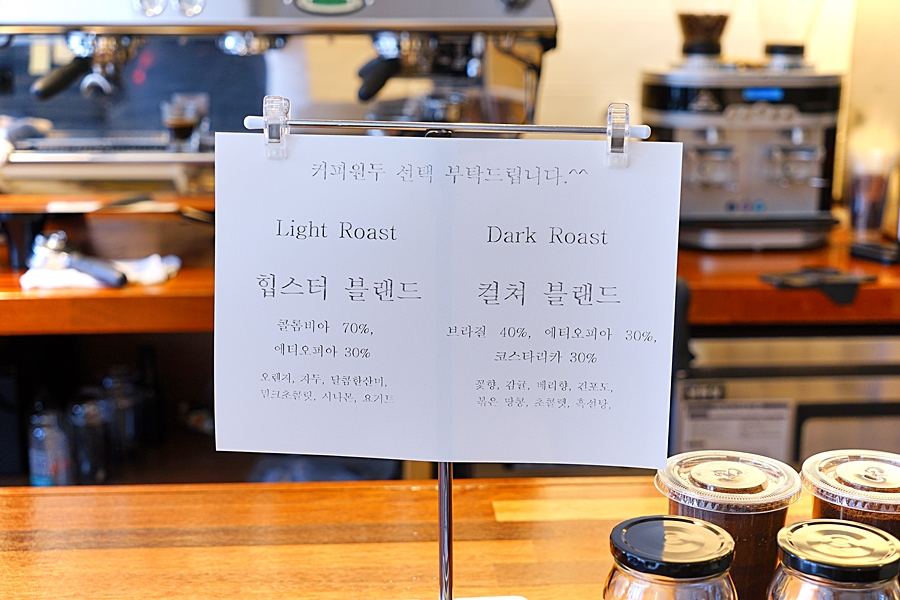 커피원두 선택 부탁드립니다.^^
Light Roast
힙스터 블랜드
콜롬비아 70%,
에티오피아 30%
오렌지, 자두, 달콤한산미,
밀크초콜릿, 시나몬, 요거트
Dark Roast
컬쳐 블랜드
브라질 40%, 에티오피아 30%,
코스타리카 30%
꽃향, 감귤, 베리향, 건포도,
볶은 땅콩, 초콜렛, 흑설탕,